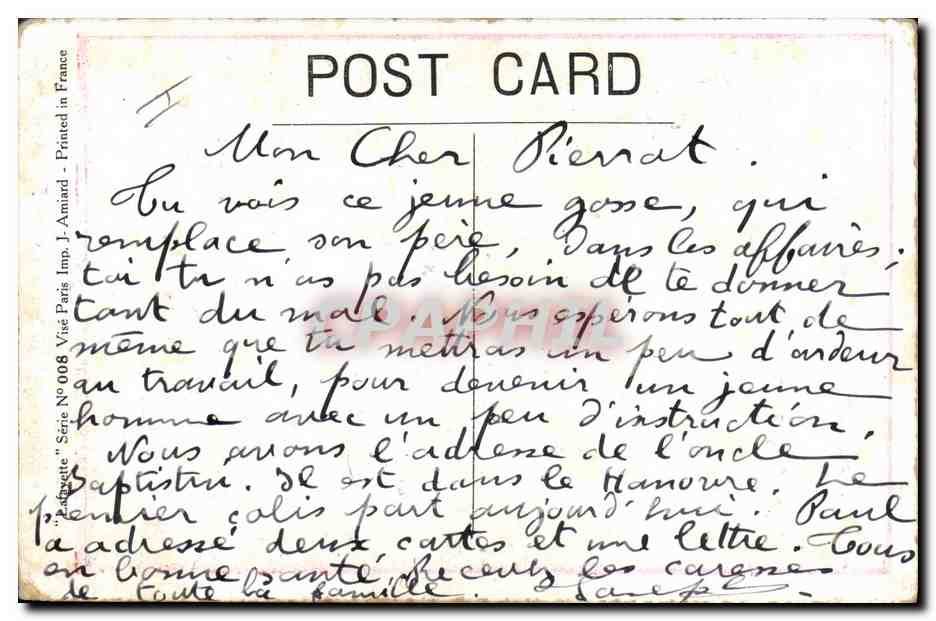 POST CARD
Mon Cher Pierrot.
Tu vois ce jeune gosse, qui
remplace son père, dans les affaires.
toi tu n'as pas besoin de te donner
tant du mal. Nous espérons tout de
même que tu mettras un peu d'ardeur
au travail, pour devenir un jeune
homme avec un peu d'instruction.
Nous avons l'adresse de l'oncle
Baptistin. Il est dans le Hanovre. Le
premier colis part aujourd'hui. Paul
a adressé deux cartes et une lettre. Tous
en bonne santé, Recevez les caresses
de toute la famille.
"Lafayette" Série Nº 008 Visé Paris Imp. J. Amiard - Printed in France
CPAPHIL